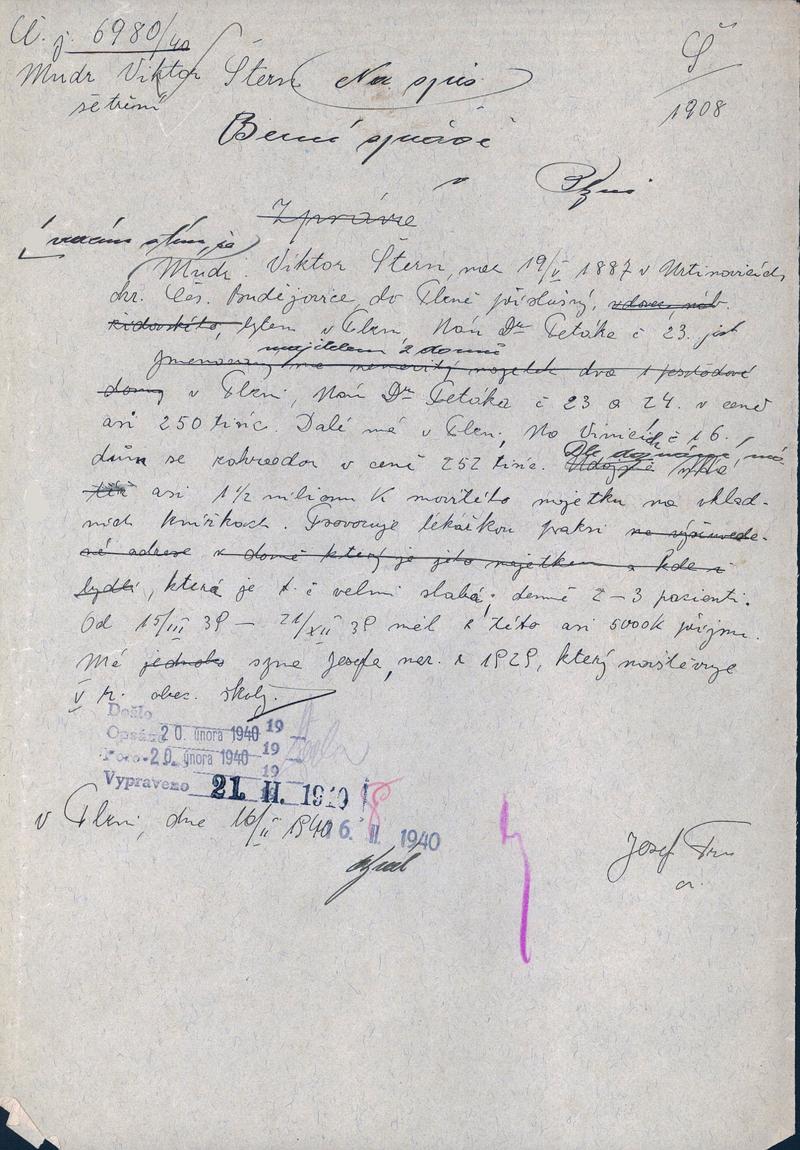 Č. j. 6980/40
Mudr Viktor Štern Na spis
šetření
Š
1908
Berní správě
v Plzni
Zprávie
vracím s tím, že
Mudr. Viktor Štern, nar 19/V 1887 v Urtinovicích,
okr. Čes. Budějovice, do Plzně příslušný, vdovec, náb.
židovského, bytem v Plzni, Nám Dra Peťáka č 23. jest
majitelem 2 domů
Jmenovaný má nemovitý majetek dva 1 posch
domy v Plzni, Nám Dra Peťáka č 23 a 24. v ceně
asi 250 tisíc. Dále má v Plzni, Na Vinicích č 16.
dům se zahradou v ceně 252 tisíc. Dle doznání má
též asi 1½ milionu K movitého majetku na vklad-
ních knížkách. Provozuje lékařskou praksi na výšeuvede-
né adrese v domě který je jeho majetkem a kde i
bydlí, která je t. č velmi slabá; denně 2-3 pacienti.
Od 15/III 39 - 21/XII 39 měl z této asi 5000K příjmu.
Má jednoho syna Josefa, nar. r 1929, který navštěvuje
V tř. obec. školy.
Došlo 19
Opsáno 20. února 1940 19
Porov. 20. února 1940 19
Vypraveno 21. II. 1940
v Plzni, dne 16/II 1940 16. II. 1940
Josef